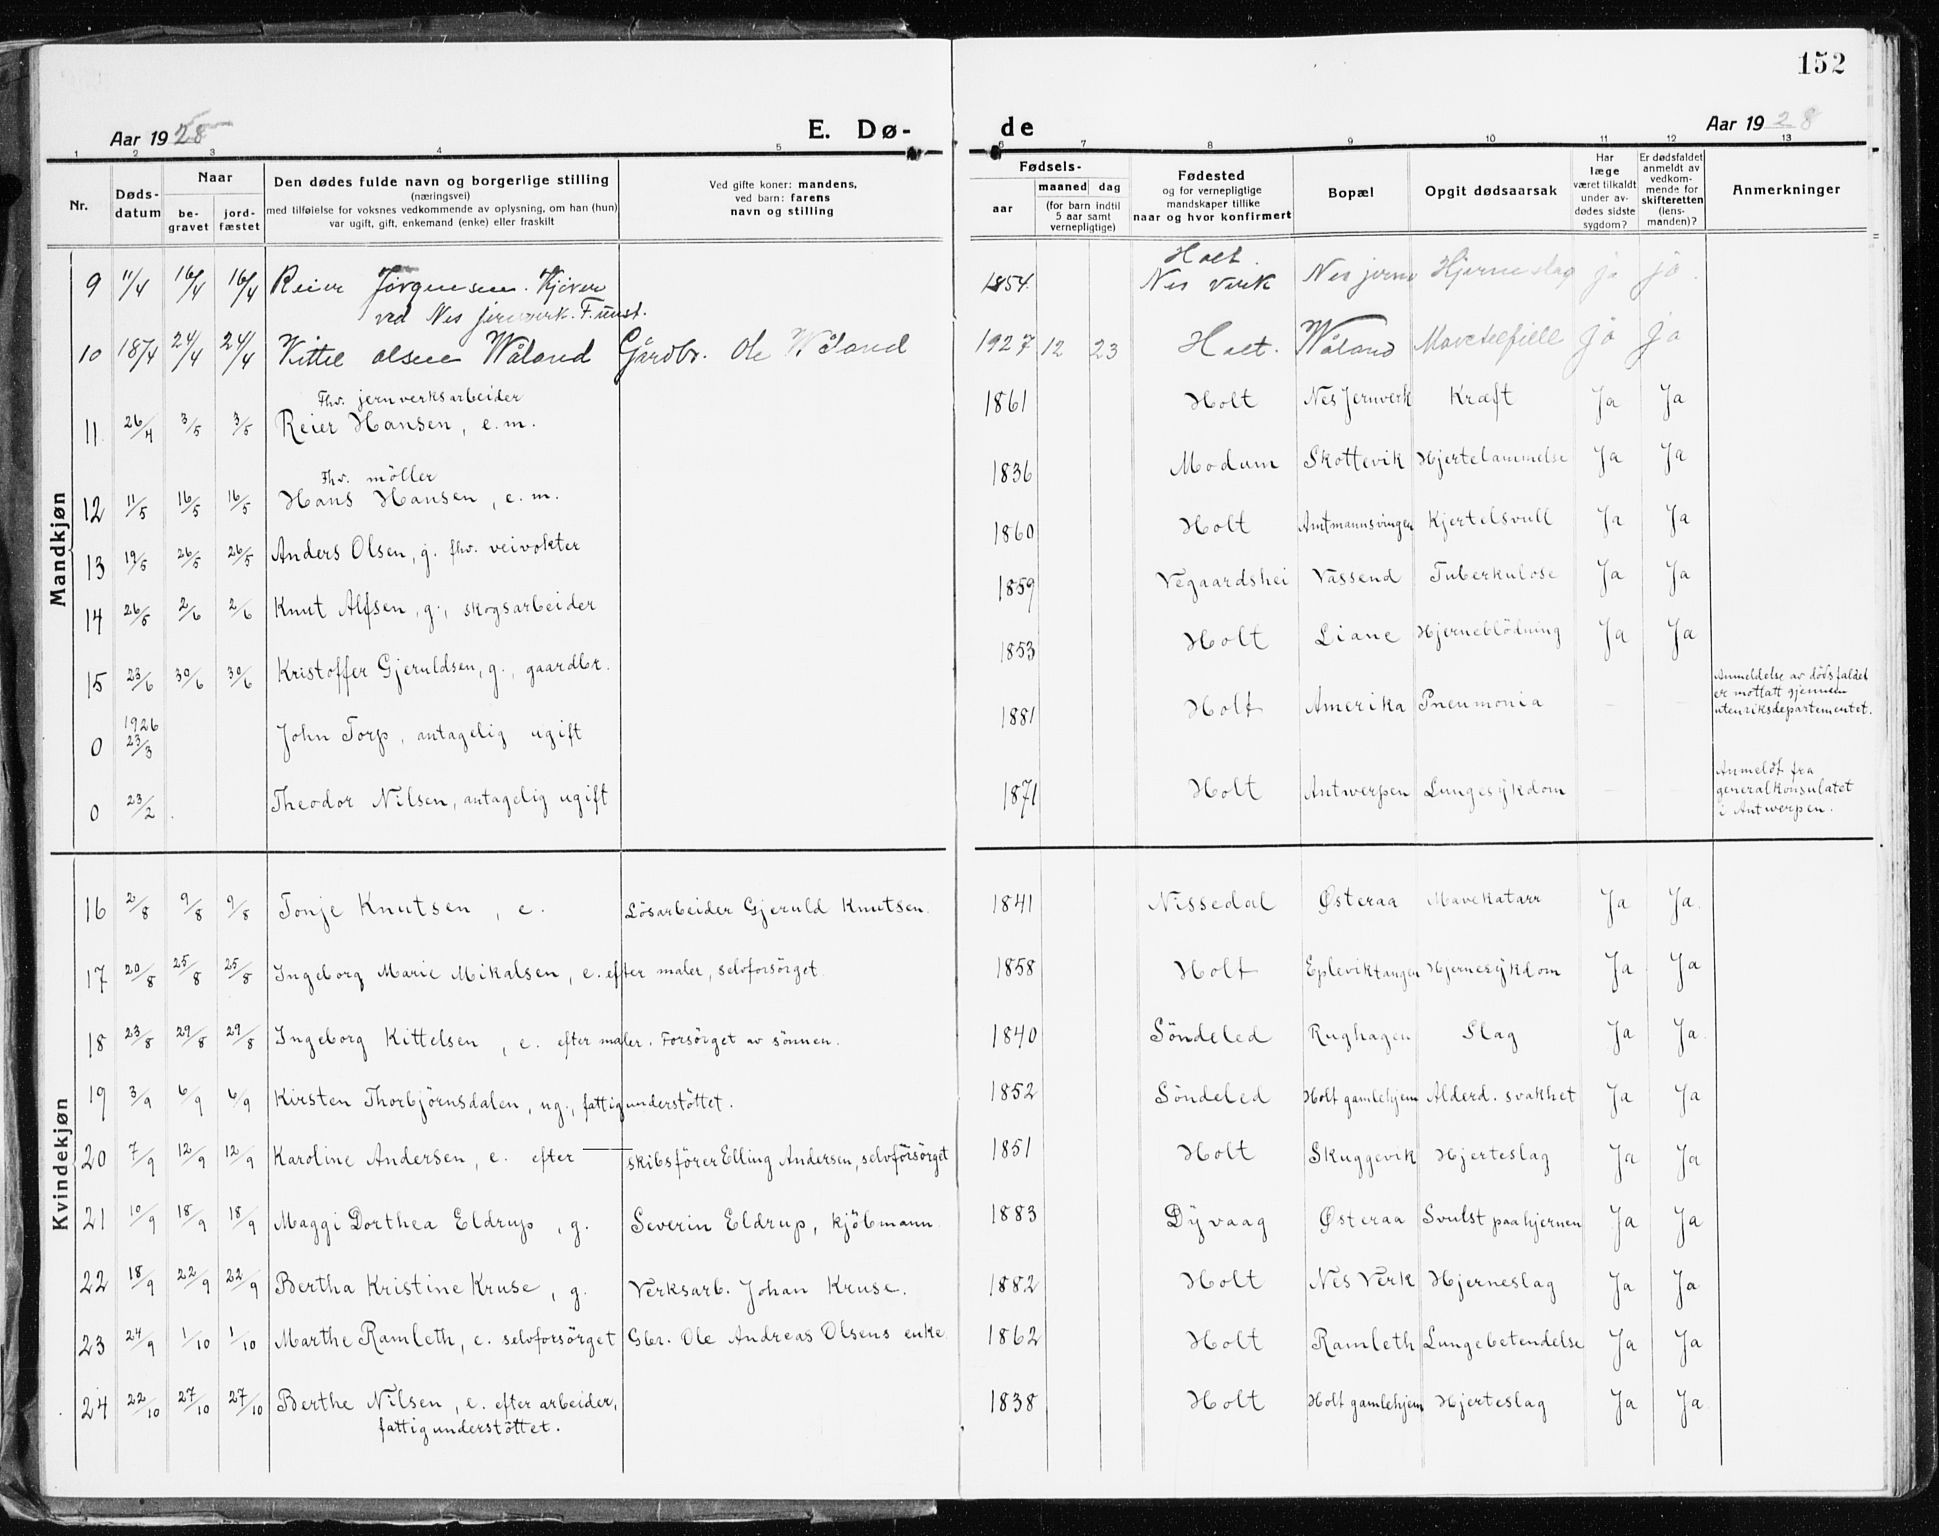 152
Aar 1928 E. Dø- de Aar 1928
1 2 3 4 5 6 7 8 9 10 11 12 13
Nr.
Døds-
datum
Naar
be-
gravet
jord-
fæstet
Den dødes fulde navn og borgerlige stilling
(næringsvei)
med tilføielse for voksnes vedkommende av oplysning, om han (hun)
var ugift, gift, enkemand (enke) eller fraskilt
Ved gifte koner: mandens,
ved barn: farens
navn og stilling
Fødsels-
aar
maaned dag
(for barn indtil
5 aar samt
vernepligtige)
Fødested
og for vernepligtige
mandskaper tillike
naar og hvor konfirmert
Bopæl
Opgit dødsaarsak
Har
læge
været tilkaldt
under av-
dødes sidste
sygdom?
Er dødsfaldet
anmeldt av
vedkom-
mende for
skifteretten
(lens-
manden)?
Anmerkninger
Mandkjøn
9 11/4 16/4 16/4 Reier Jørgensen. Kjører 1854. Holt. Nes Verk Nes jernv Hjerneslag ja ja.
ved Nes jernverk. F. unst.
10 18/4 24/4 24/4 Kittil Olsen Wåland Gårdbr. Ole Wåland 1927 12 23 Holt. Wåland ja ja
Fhv. jernverksarbeider
11 26/4 3/5 3/5 Reier Hansen, e.m. 1861 Holt Nes Jernverk Kræft Ja Ja
Fhv. möller
12 11/5 16/5 16/5 Hans Hansen, e.m. 1836 Modum Skottevik Hjertelammelse Ja Ja
13 19/5 26/5 26/5 Anders Olsen, g. fhv. veivokter 1860 Holt Amtmannsvingen Kjertelsvull Ja Ja
14 26/5 2/6 2/6 Knut Alfsen, g., skogsarbeider 1859 Vegaardshei Vassend Tuberkulose Ja Ja
15 23/6 30/6 30/6 Kristoffer Gjeruldsen, g., gaardbr. 1853 Holt Liane Hjerneblödning Ja Ja
0 1926 23/3 John Torp, antagelig ugift 1881 Holt Amerika Pneumonia — — Anmeldelse av dödsfaldet
er mottatt gjennem
utenriksdepartementet.
0 23/2 Theodor Nilsen, antagelig ugift 1871 Holt Antwerpen Lungesykdom — — Anmeldt fra
generalkonsulatet
i Antwerpen.
Kvindekjøn
16 2/8 9/8 9/8 Tonje Knutsen, e. Lösarbeider Gjeruld Knutsen. 1841 Nissedal Østeraa Mavekatarr Ja Ja.
17 20/8 25/8 25/8 Ingeborg Marie Mikalsen, e. efter maler, selvforsörget 1858 Holt Epleviktangen Hjernesykdom Ja Ja
18 23/8 29/8 29/8 Ingeborg Kittelsen, e. efter maler. Forsörget av sönnen. 1840 Söndeled Rughagen Slag Ja Ja.
19 3/9 6/9 6/9 Kirsten Thorbjörnsdalen, ug., fattigunderstöttet. 1852 Söndeled Holt gamlehjem Alderd. svakhet Ja Ja
20 7/9 12/9 12/9 Karoline Andersen, e. efter — skibsförer Elling Andersen, selvforsörget 1851 Holt Skuggevik Hjerteslag Ja Ja
21 10/9 18/9 18/9 Maggi Dorthea Eldrup, g. Severin Eldrup, kjöbmann. 1883 Dyvaag Østeraa Svulst paa hjernen Ja Ja
22 18/9 22/9 22/9 Bertha Kristine Kruse, g. Verksarb. Johan Kruse. 1882 Holt Nes Verk Hjerneslag Ja Ja
23 24/9 1/10 1/10 Marthe Ramleth, e. selvforsörget Gbr. Ole Andreas Olsens enke. 1862 Holt Ramleth Lungebetendelse Ja Ja
24 22/10 27/10 27/10 Berthe Nilsen, e. efter arbeider, 1838 Holt Holt gamlehjem Hjerteslag Ja Ja.
fattigunderstöttet.